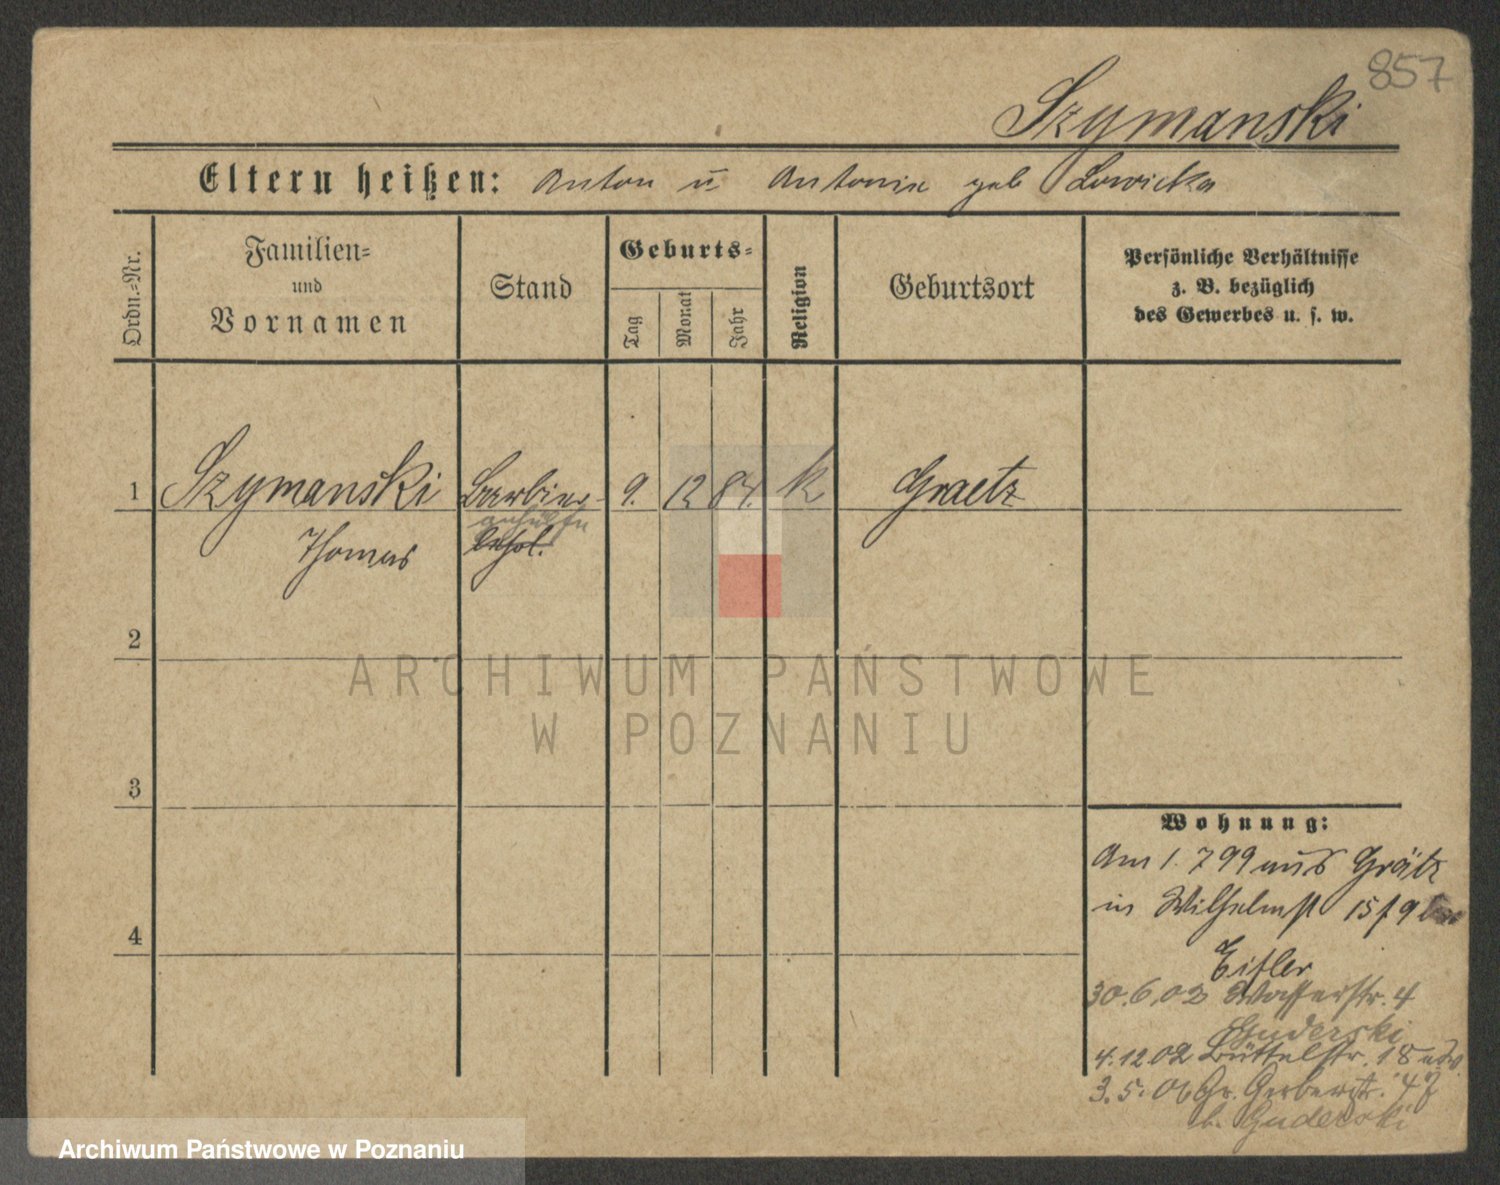 857
Szymanski
Eltern heißen: Anton u Antonie geb Lowicka
Ordn.-Nr.
Familien-
und
Vornamen
Stand
Geburts-
Tag
Monat
Jahr
Religion
Geburtsort
Persönliche Verhältnisse
z. B. bezüglich
des Gewerbes u. s. w.
1 Szymanski Barbier- 9. 12 84. k Graetz
gehülfe
Thomas lehrl.
2
ARCHIWUM PAŃSTWOWE
W POZNANIU
3
Wohnung:
Am 1. 7 99 aus Grätz
in Wilhelmst 15 / 9
Eifler
4
30.6.02 Wasserstr. 4
Guderski
4.12.02 Büttelstr. 18
3.5.06 Gr. Gerberstr. 47
b. Guderski
Archiwum Państwowe w Poznaniu